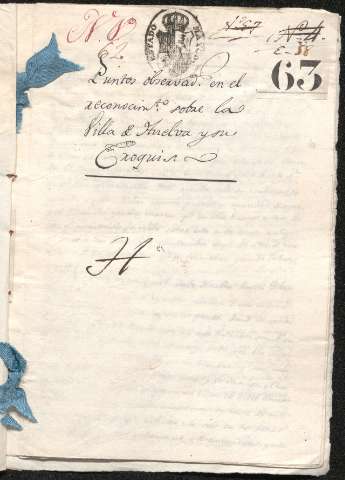 N. V.
Nº 67
63
Puntos observads. en el
reconocimto. sobre la
Villa de Huelva y su
Croquis
H